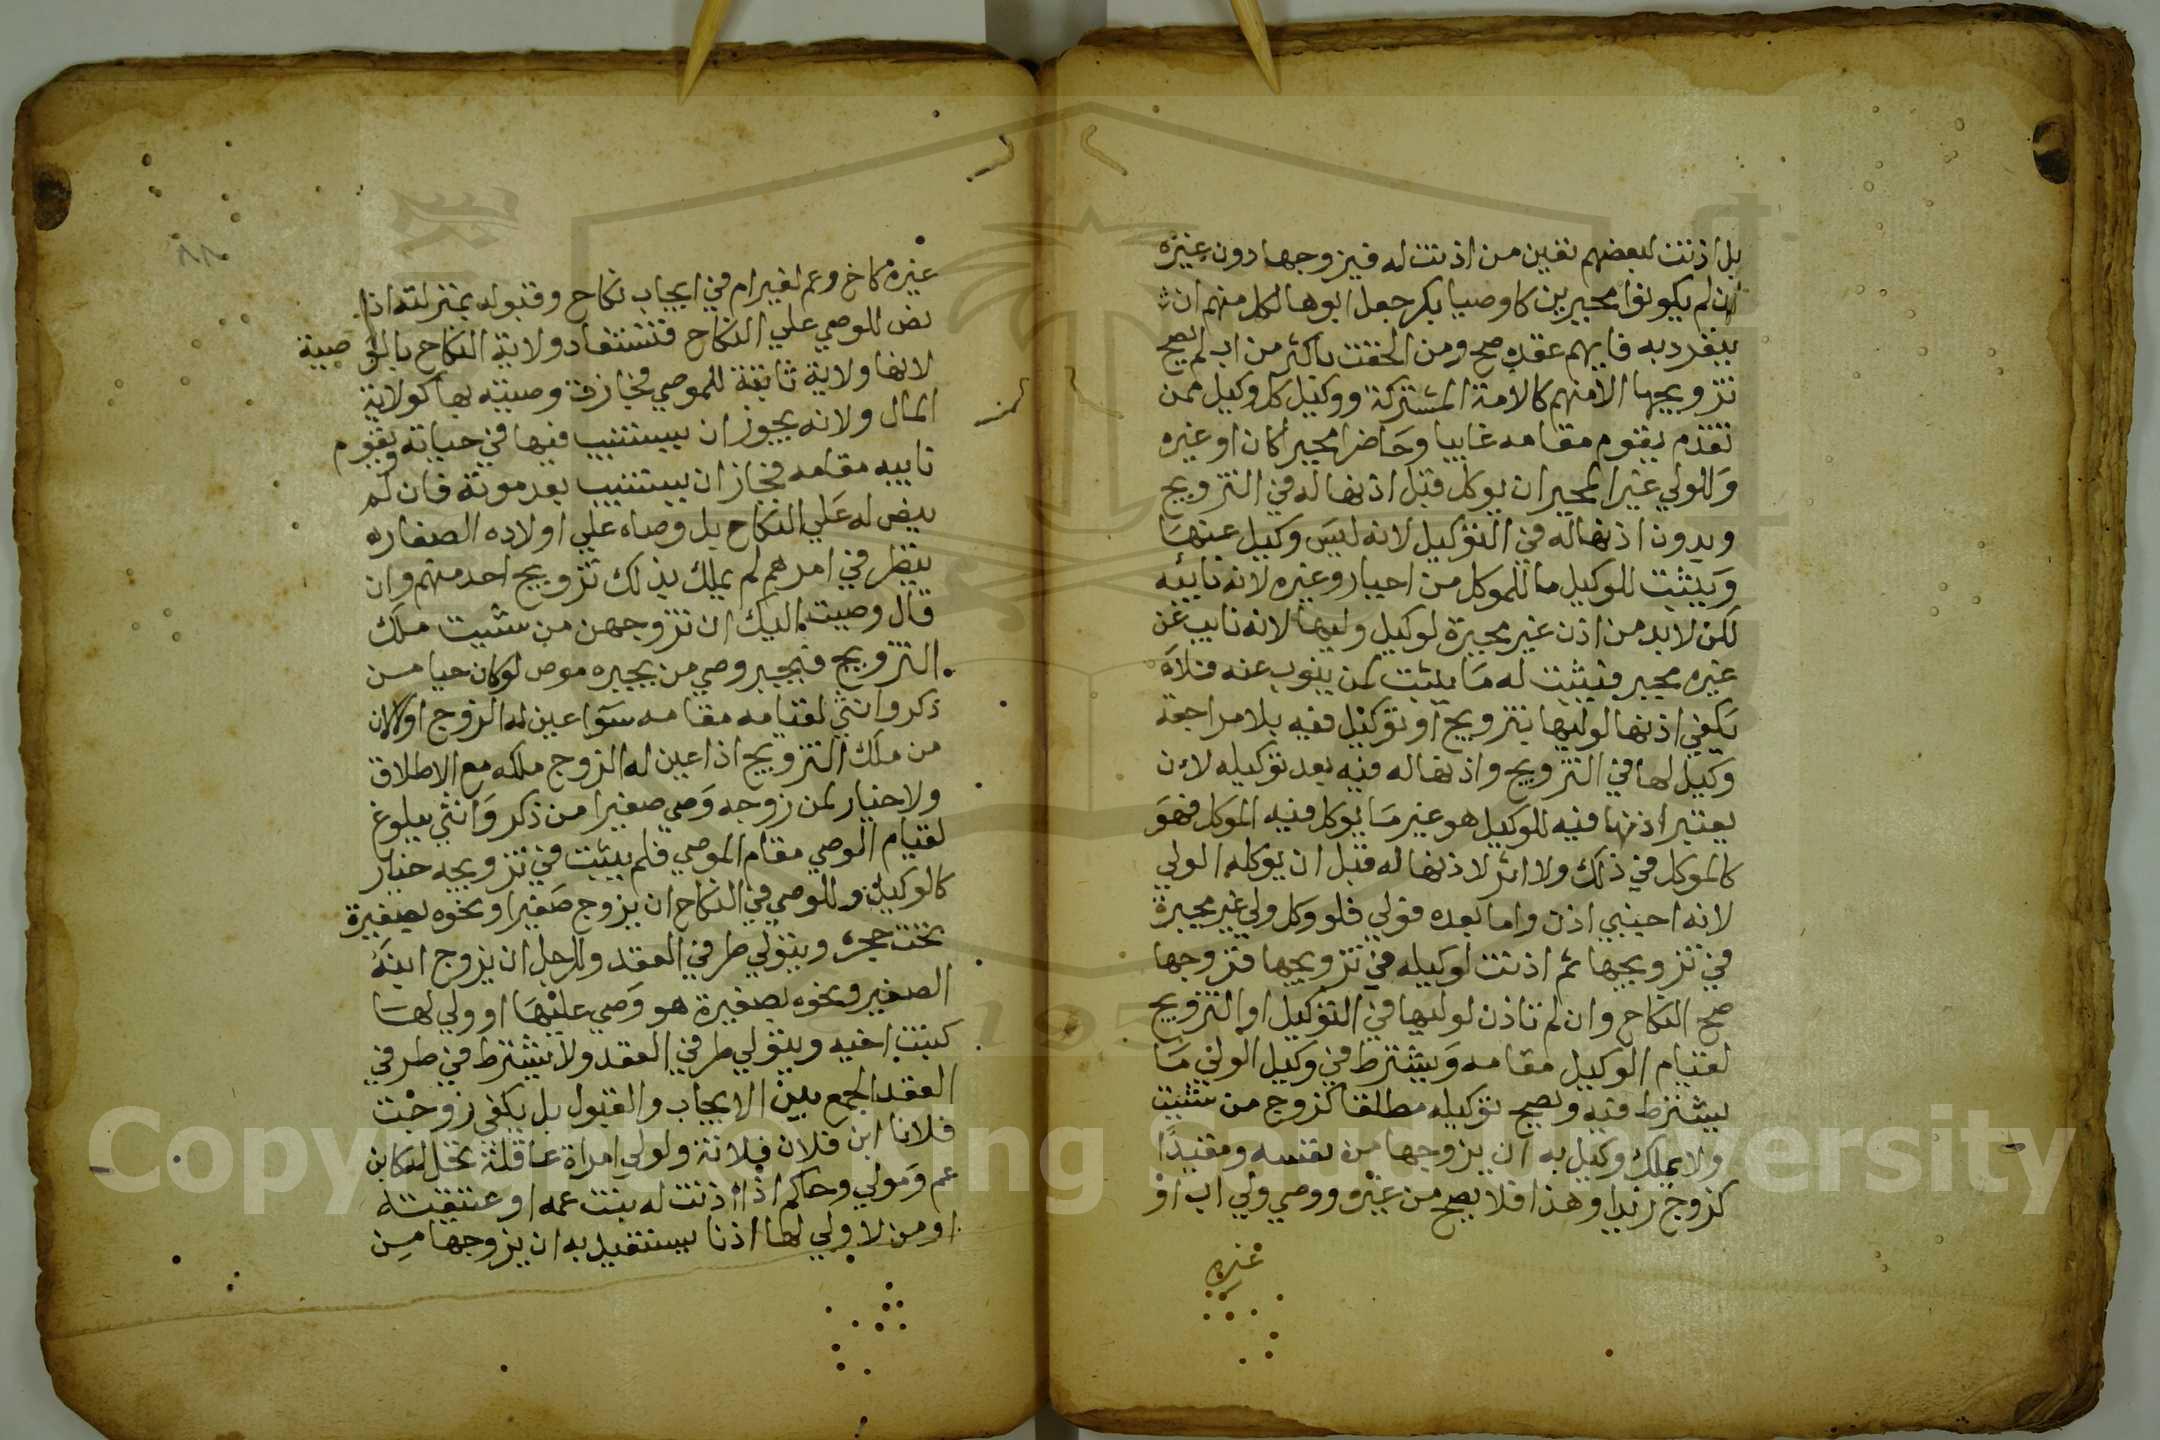 بل اذنت لبعضهم تعين من اذنت له فيزوجها دون غيره
ان لم يكونوا مجبرين كاوصيا بكر جعل ابوها لكل منهم ان
ينفرد به فايهم عقده صح ومن الحقت باكثر من اب لم يصح
تزويجها الا منهم كالامة المشتركة ووكيل كل وكيل ممن
تقدم يقوم مقامه غايبا وحاضرا مجبرا كان او غيره
وللولي غير المجبر ان يوكل قبل اذنها له في التزويج
وبدون اذنها له في التوكيل لانه ليس وكيل عنها
ويثبت للوكيل ما للموكل من اجبار وغيره لانه نايبه
لكن لا بد من اذن غير مجبرة لوكيل وليها لانه نايب عن
غيره مجبر فيثبت له ما يثبت لمن ينوب عنه فلا
يكفي اذنها لوليها بتزويج او توكيل فيه بلا مراجعة
وكيل لها في التزويج واذنها له فيه بعد توكيله لان
يعتبر اذنها فيه للوكيل هو غير ما يوكل فيه الموكل فهو
كالموكل في ذلك ولا اثر لاذنها له قبل ان يوكله الولي
لانه اجنبي اذن واما بعده فولي فلو وكل ولي غير مجبرة
في تزويجها ثم اذنت لوكيله في تزويجها فتزوجها
صح النكاح وان لم تاذن لوليها في التوكيل او التزويج
لقيام الوكيل مقامه ويشترط في وكيل الولي ما
يشترط فيه ويصح توكيله مطلقا كزوج من شئت
ولا يملك وكيل به ان يزوجها من نفسه ومقيدا
كزوج زيدا وهذا فلا يصح من غيره ووصي ولي اب او
غيره
١١
غيره كاخ وعم لغير ام في ايجاب نكاح وقبوله بمنزلته اذا
نص للموصي علي النكاح فتستفاد ولاية النكاح بالوصية
لانها ولاية ثابتة للموصي فجازت وصيته بها كولاية
المال ولانه يجوز ان يستنيب فيها في حياته ويقوم
نايبه مقامه فجاز ان يستنيب بعد موته فان لم
ينص له علي النكاح بل وصاه علي اولاده الصغار
ينظر في امرهم لم يملك بذلك تزويج احد منهم وان
قال وصيت اليك ان تزوجهن من شئت ملك
التزويج فيجبر وصي من يجبره موص لو كان حيا من
ذكر وانثي لقيامه مقامه سوا عين له الزوج اولا لان
من ملك التزويج اذا عين له الزوج ملكه مع الاطلاق
ولا خيار لمن زوجه وصي صغيرا من ذكر وانثي ببلوغ
لقيام الوصي مقام الموصي فلم يثبت في تزويجه خيار
كالوكيل وللوصي في النكاح ان يزوج صغيرا ونحوه بصغيرة
تحت حجره ويتولي طرفي العقد وللرجل ان يزوج ابنه
الصغير ونحوه بصغيرة هو وصي عليها او ولي لها
كبنت اخيه ويتولي طرفي العقد ولا يشترط في طرفي
العقد الجمع بين الايجاب والقبول بل يكفي زوجت
فلانا ابن فلان فلانة ولولي امراة عاقلة تحل له كابن
عم ومولي وحاكم اذا اذنت له بنت عمه او عتيقته
او من لا ولي لها اذنا يستفيد به ان يزوجها من
Copyright © King Saud University